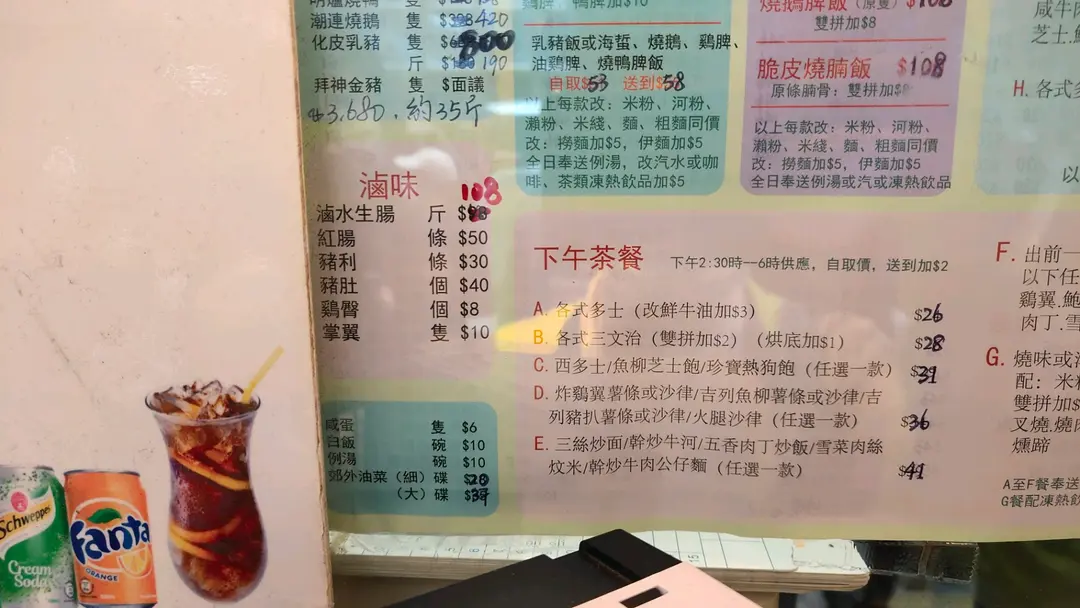 潮連燒鵝 隻 $398 420
化皮乳豬 隻 800
斤 190
拜神金豬 隻 $面議
3,680. 約35斤
滷味
108
滷水生腸 斤 $98
紅腸 條 $50
豬利 條 $30
豬肚 個 $40
鷄臀 個 $8
掌翼 隻 $10
咸蛋 隻 $6
白飯 碗 $10
例湯 碗 $10
郊外油菜（細）碟 $28
（大）碟 $37
鷄髀、鴨髀加$10
乳豬飯或海蜇、燒鵝、鷄髀、
油鷄髀、燒鴨髀飯
自取$53 送到$58
以上每款改：米粉、河粉、
瀨粉、米綫、麵、粗麵同價
改：撈麵加$5，伊麵加$5
全日奉送例湯，改汽水或咖
啡、茶類凍熱飲品加$5
燒鵝髀飯（原隻）$108
雙拼加$8
脆皮燒腩飯 $108
原條腩骨：雙拼加$8
以上每款改：米粉、河粉、
瀨粉、米綫、麵、粗麵同價
改：撈麵加$5，伊麵加$5
全日奉送例湯或汽或凍熱飲品
咸牛肉
芝士.
H. 各式
以
下午茶餐 下午2:30時--6時供應，自取價，送到加$2
A. 各式多士（改鮮牛油加$3） $26
B. 各式三文治（雙拼加$2）（烘底加$1） $28
C. 西多士/魚柳芝士飽/珍寶熱狗飽（任選一款） $31
D. 炸鷄翼薯條或沙律/吉列魚柳薯條或沙律/吉
列豬扒薯條或沙律/火腿沙律（任選一款） $36
E. 三絲炒面/幹炒牛河/五香肉丁炒飯/雪菜肉絲
炆米/幹炒牛肉公仔麵（任選一款） $41
F. 出前一
以下任
鷄翼.鮑
肉丁.雪
G. 燒味或
配：米
雙拼加$
叉燒.燒
燻蹄
A至F餐奉送
G餐配凍熱飲
Schweppes
Cream
Soda
Fanta
ORANGE